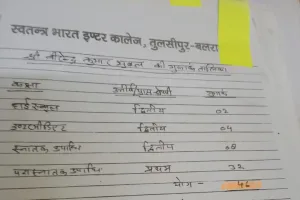 स्वतन्त्र भारत इण्टर कालेज, तुलसीपुर-बलरा
श्री वीरेन्द्र कुमार शुक्ला की गुणांक तालिका
कक्षा उत्तीर्ण श्रेणी गुणांक
हाईस्कूल द्वितीय 02
इण्टरमीडिएट द्वितीय 04
स्नातक उपाधि द्वितीय 08
परास्नातक उपाधि प्रथम 32
योग - 46